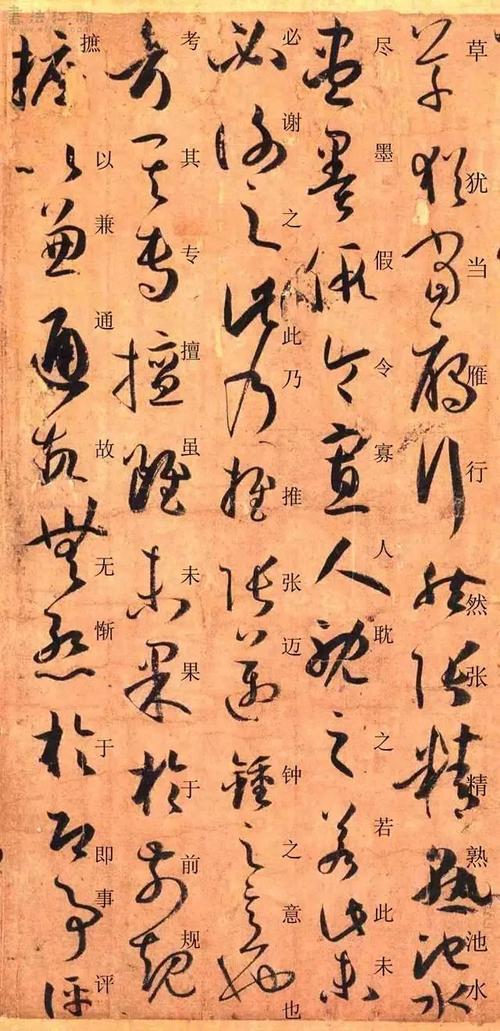 草猶當鴈行然張精熟池水
草犹当雁行然张精熟池水
盡墨假令寡人耽之若此未
尽墨假令寡人耽之若此未
必謝之此乃推張邁鍾之意也
必谢之此乃推张迈钟之意也
考其專擅雖未果於前規
考其专擅虽未果于前规
摭以兼通故無慚於即事評
摭以兼通故无惭于即事评